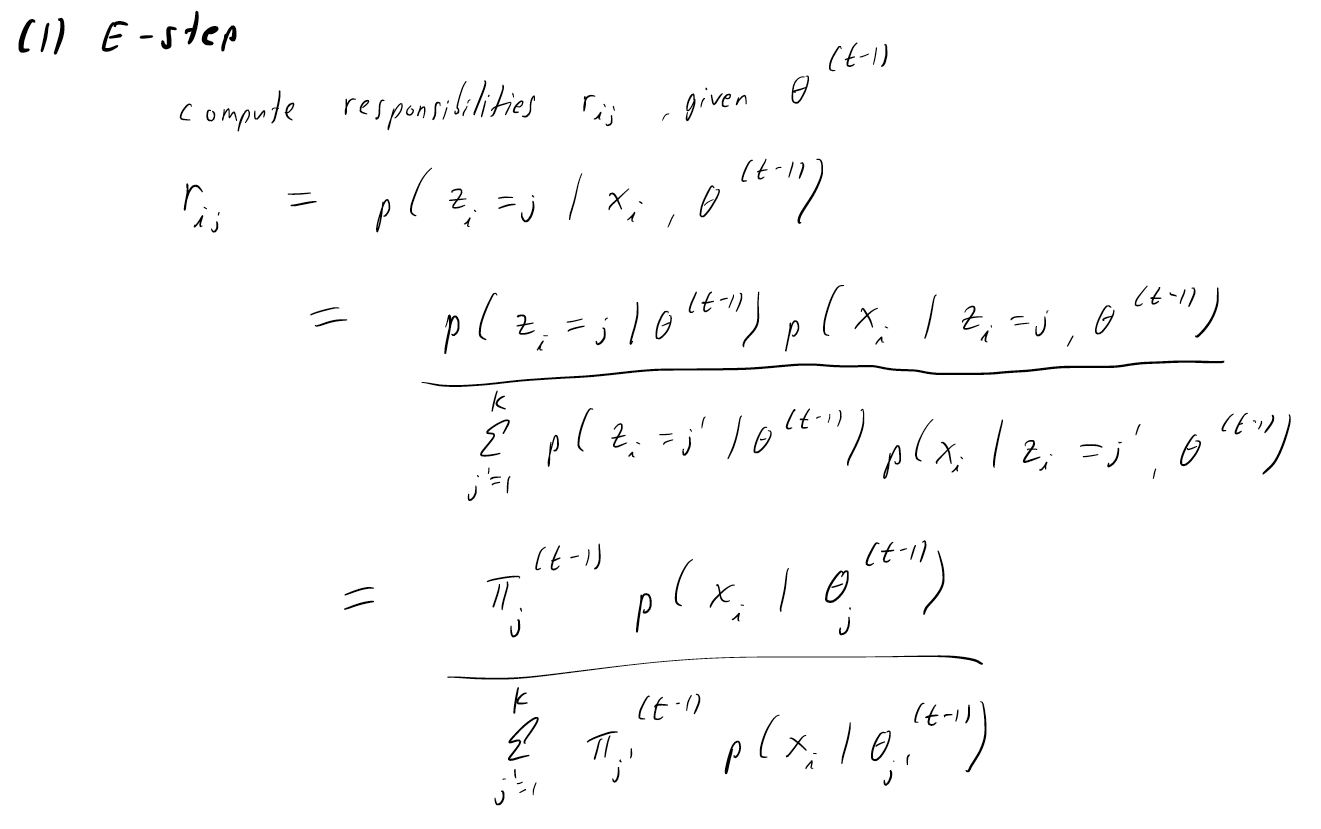 (1) E-step
compute responsibilities r_{ij}, given θ^{(t-1)}
r_{ij} = p( z_i = j | x_i, θ^{(t-1)})
= \frac{p( z_i = j | θ^{(t-1)}) p( x_i | z_i = j, θ^{(t-1)})}{\sum_{j'=1}^{K} p( z_i = j' | θ^{(t-1)}) p(x_i | z_i = j', θ^{(t-1)})}
= \frac{π_j^{(t-1)} p( x_i | θ_j^{(t-1)})}{\sum_{j'=1}^{K} π_{j'}^{(t-1)} p(x_i | θ_{j'}^{(t-1)})}